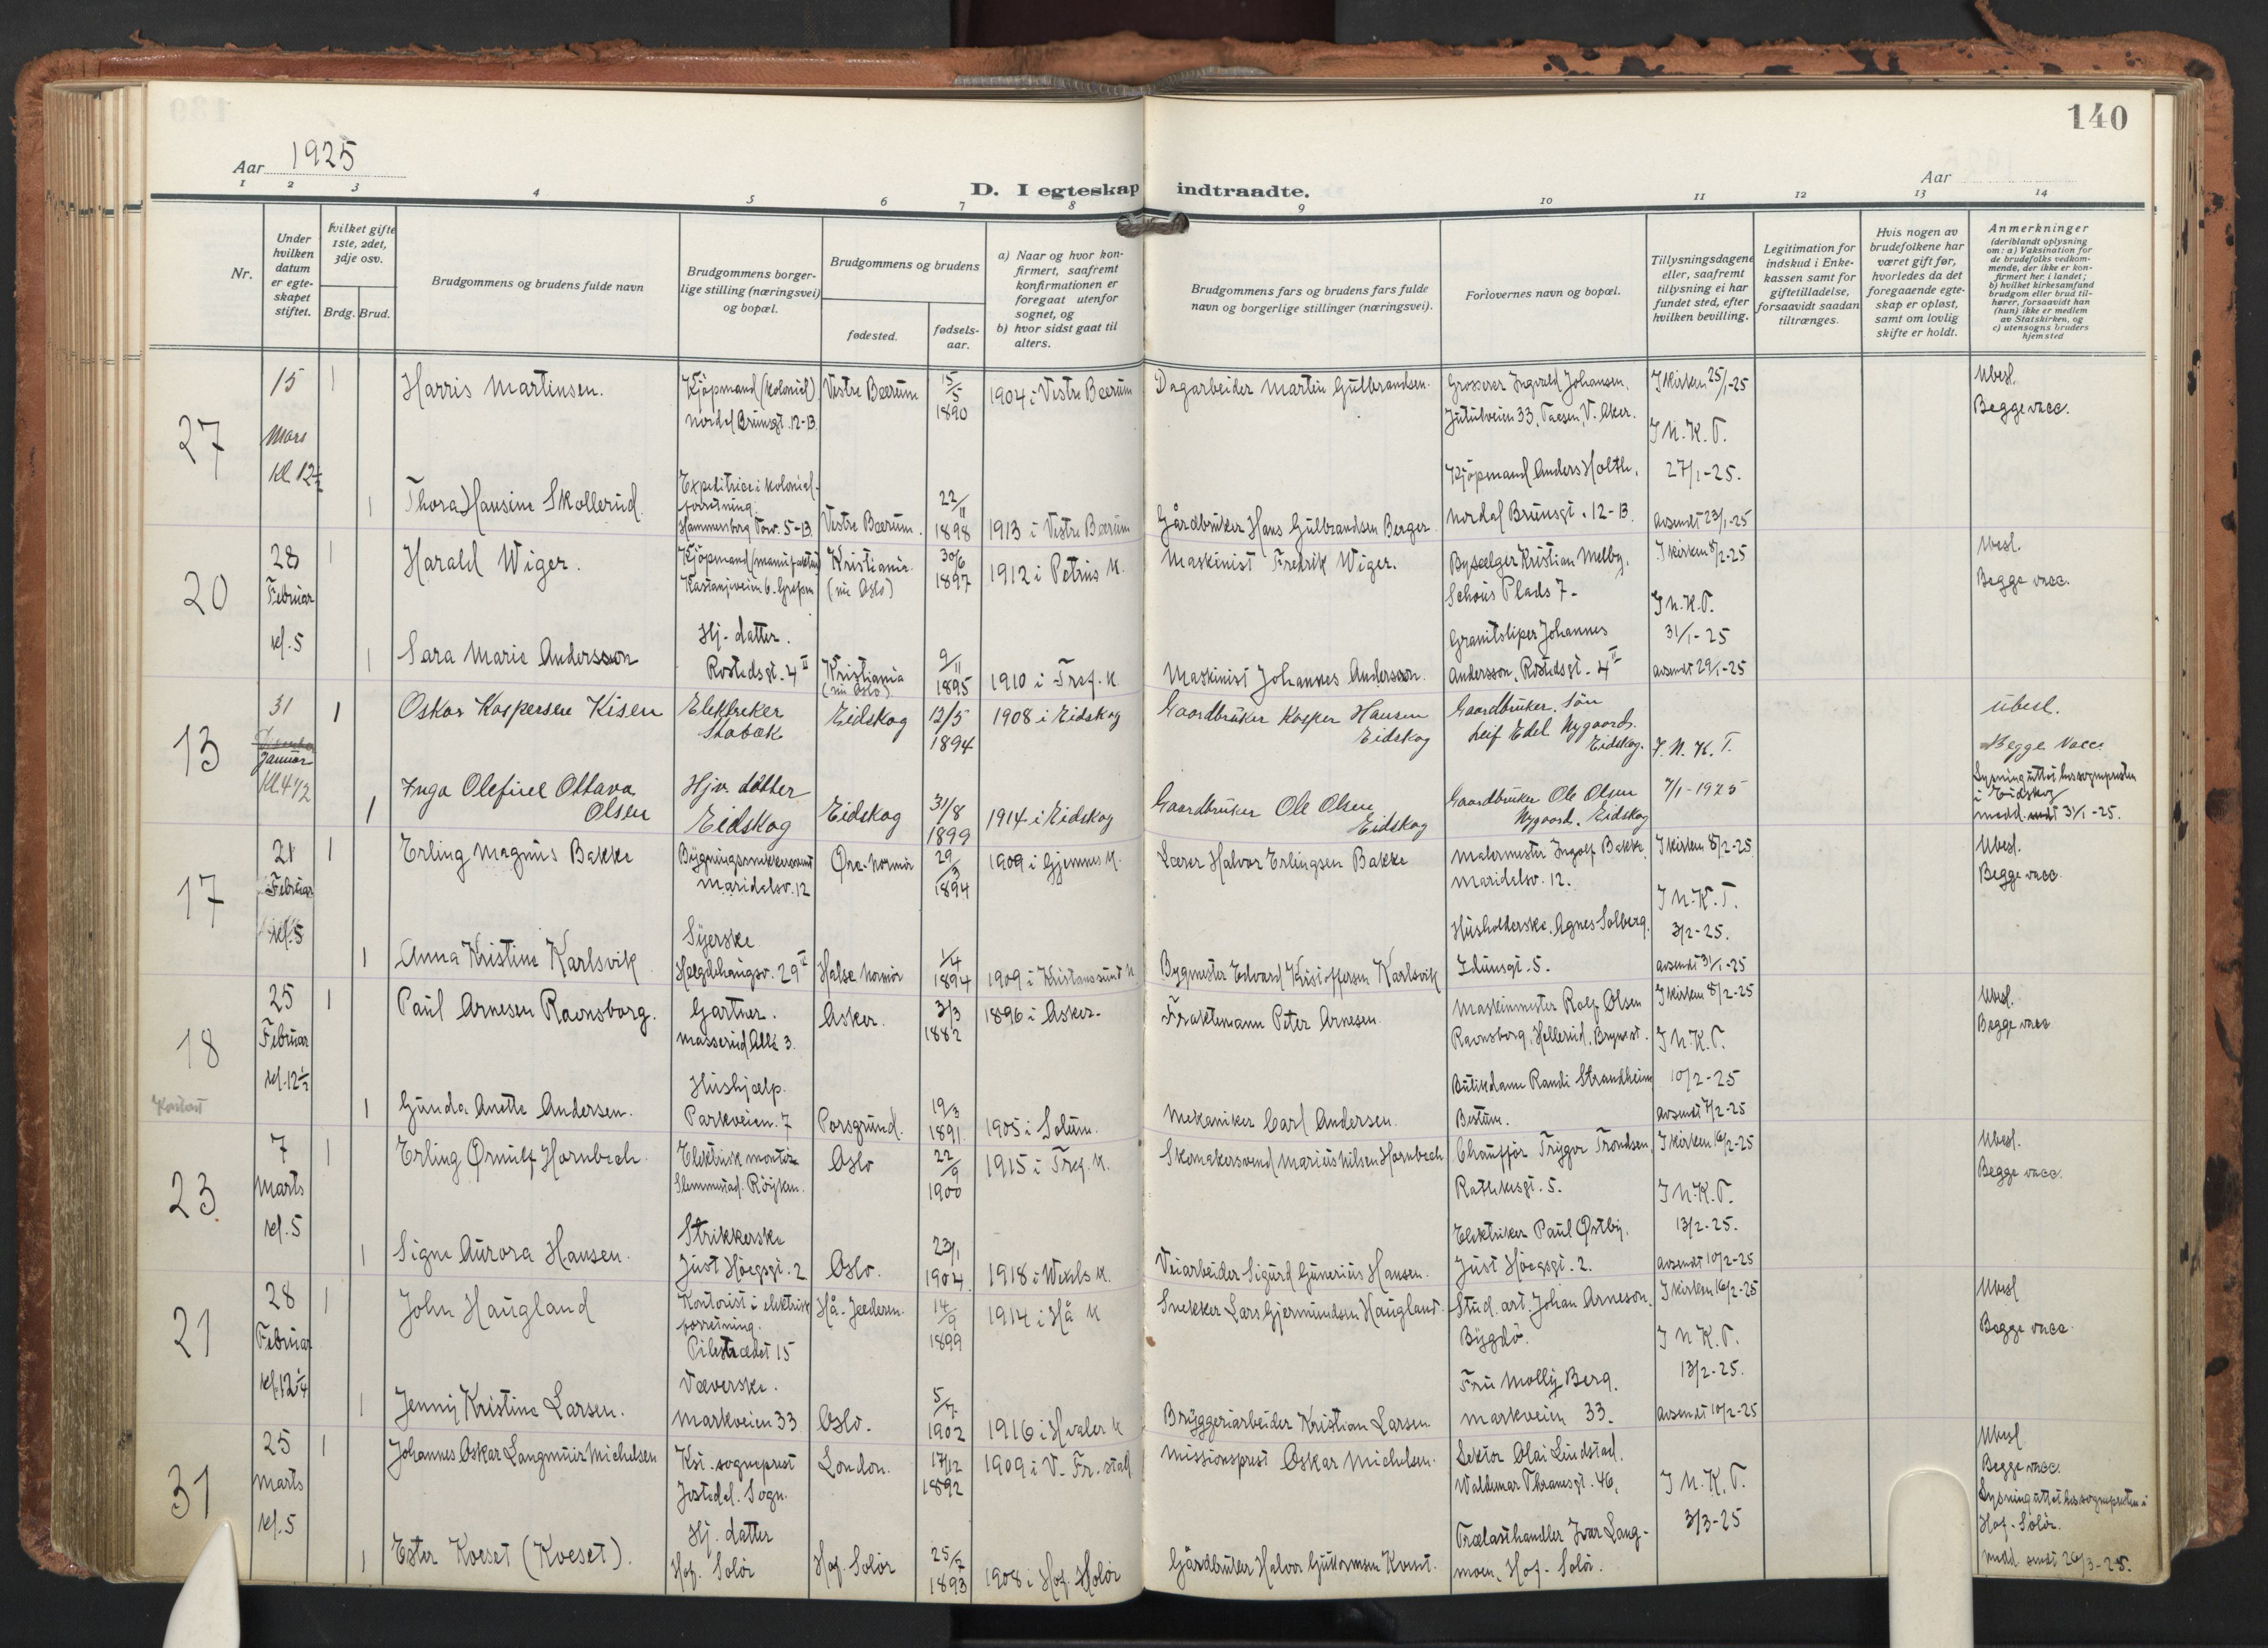 140
Aar 1925
Aar
D. I egteskap indtraadte.
1 2 3 4 5 6 7 8 9 10 11 12 13 14
Nr.
Under hvilken datum er egteskapet stiftet.
hvilket gifte 1ste, 2det, 3dje osv.
Brdg. Brud.
Brudgommens og brudens fulde navn
Brudgommens borgerlige stilling (næringsvei) og bopæl.
Brudgommens og brudens
fødested.
fødsels-aar.
a) Naar og hvor konfirmert, saafremt konfirmationen er foregaat utenfor sognet, og
b) hvor sidst gaat til alters.
Brudgommens fars og brudens fars fulde navn og borgerlige stillinger (næringsvei).
Forlovernes navn og bopæl.
Tillysningsdagene eller, saafremt tillysning ei har fundet sted, efter hvilken bevilling.
Legitimation for indskud i Enkekassen samt for giftetilladelse, forsaavidt saadan tiltrænges.
Hvis nogen av brudefolkene har været gift før, hvorledes da det foregaaende egteskap er opløst, samt om lovlig skifte er holdt.
Anmerkninger
(deriblandt oplysning om: a) Vaksination for de brudefolks vedkommende, der ikke er konfirmert her i landet; b) hvilket kirkesamfund brudgom eller brud tilhører, forsaavidt han (hun) ikke er medlem av Statskirken, og c) utensogns bruders hjemsted
27
15 Mars Kl. 12½
1 Harris Martinsen.
Kjøpmand (kolonial) Nordal Brunsgt. 12-13
Vestre Bærum 15/5 1890
1904 i Vestre Bærum
Dagarbeider Martin Gulbrandsen.
Grosserer Ingvald Johansen, Jutulveien 33, Taasen, V. Aker.
I kirken 25/1-25
I N.K.T.
Ubesl.
Begge vacc.
1 Thora Hansine Skollerud.
Expeditrice i kolonial-forretning. Hammersborg Torv. 5-13
Vestre Bærum. 22/11 1898
1913 i Vestre Bærum
Gårdbruker Hans Gulbrandsen Berger
Kjøpmand Anders Holth, Nordal Brunsgt. 12-13.
27/1-25.
avsendt 23/1-25
20
28 Februar kl. 5
1 Harald Wiger.
Kjøpmand (manufaktur) Kastanjeveien 6. Grefsen
Kristiania (nu Oslo) 30/6 1897
1912 i Petrus K.
Maskinist Fredrik Wiger.
Byselger Kristian Melby. Schous Plads 7-
I kirken 8/2-25
I N.K.T.
Ubesl.
Begge vacc.
1 Sara Marie Andersson
Hj. datter. Rostedsgt. 4 II
Kristiania (nu Oslo) 9/11 1895
1910 i Tref. K.
Maskinist Johannes Andersson.
Granitsliper Johannes Andersson, Rostedsgt. 4 II
31/1-25
avsendt 29/1-25
13
31 Januar Kl 4 1/2
1 Oskar Kaspersen Kisen
Elektreker Stabæk
Eidskog 12/5 1894
1908 i Eidskog
Gaardbruker Kasper Hansen Eidskog
Gaardbruker. Søn Leif Edel Nygaard. Eidskog.
I. N. K. T.
Ubesl.
Begge Vacc.
1 Inga Olefine Ottava Olsen
Hjv. datter Eidskog
Eidskog 31/8 1899
1914 i Eidskog
Gaardbruker Ole Olsen Eidskog
Gaardbruker Ole Olsen Nygaard. Eidskog
7/1-1925
Lysning uttat hos sognepresten i Eidskog medd. 31/1-25.
17
21 Februar kl. 5
1 Erling Magnus Bakke
Maridalsv. 12
Øre-Normör 29/3 1894
1909 i Gjemnes K.
Lærer Halvor Erlingsen Bakke
Malermester Ingolf Bakke, Maridalsv. 12.
I kirken 8/2-25
I N.K.T.
Ubesl.
Begge vacc.
1 Anna Kristine Karlsvik
Syerske Helgdehaugsv. 29 II
Halse Normör 1/4 1894
1909 i Kristiansund N.
Bygmester Edvard Kristoffersen Karlsvik
Husholderske. Agnes Solberg. Idunsgt. 5.
3/2-25.
avsendt 31/1-25
18
25 Februar kl. 12½
1 Paul Arnesen Ravnsborg.
Gartner. Masserud Allé 3.
Asker. 3/3 1882
1896 i Asker.
Fraktemann Peter Arnesen.
Maskinmester Rolf Olsen Ravnsborg, Hellerud, Bryn st.
I kirken 8/2-25
I N.K.T.
Ubesl.
Begge vacc
1 Gunda Anette Andersen.
Hushjælp. Parkveien. 7
Porsgrund. 19/3 1891.
1905 i Solum.
Mekaniker Carl Andersen.
Butikdame Randi Strandheim Bestum.
10/2-25
avsendt 7/2-25
23
7 Marts kl. 5
1 Erling Ørnulf Hornbech.
Elektrisk montør Slemmestad. Röyken.
Oslo 22/9 1900
1915 i Tref. K.
Skomakersvend Marius Nilsen Hornbech
Chauffør Trygve Trondsen, Rathkesgt. 5.
I kirken 16/2-25
I N.K.T.
Ubesl.
Begge vacc.
1 Signe Aurora Hansen.
Strikkerske Just Höegsgt. 2
Oslo. 23/1 1904
1918 i Wexels K.
Veiarbeider Sigurd Gunerius Hansen.
Elektriker Paul Østby. Just Höegsgt. 2.
13/2-25.
avsendt 10/2-25
21
28 Februar kl. 12¼
1 John Haugland
Kontorist i elektrisk forretning. Pilestrædet 15
Hå. Jæderen. 14/9 1899
1914 i Hå K
Snekker Lars Gjermundsen Haugland.
Stud. art. Johan Arneson. Bygdö.
I kirken 16/2-25
I N.K.T.
Ubesl
Begge vacc.
1 Jenny Kristine Larsen.
Væverske. Markveien 33
Oslo. 5/7 1902
1916 i Hvaler K
Bryggeriarbeider Kristian Larsen
Fru Molly Berg. Markveien 33.
13/2-25.
avsendt 10/2-25
31
25 Marts kl. 5
1 Johannes Oskar Langmuir Michelsen
Kst. sogneprest Jostedal. Sogn.
London. 17/12 1892
1909 i V. Fr.
Missionsprest Oskar Michelsen.
Lektor Olai Lindstad. Waldemar Thranesgt. 46.
I N.K.T.
Ubesl
Begge vacc.
Lysning uttat hos sognepresten i Hof-Solör. medd sendt 20/3-25.
1 Ester Kveset (Kveset).
Hj. datter Hof. Solör
Hof. Solör 25/7 1893
1908 i Hof. Solör
Gårdbruker Halvor Guttormsen Kveset.
Trælasthandler Ivar Langmoen, Hof. Solör.
3/3-25